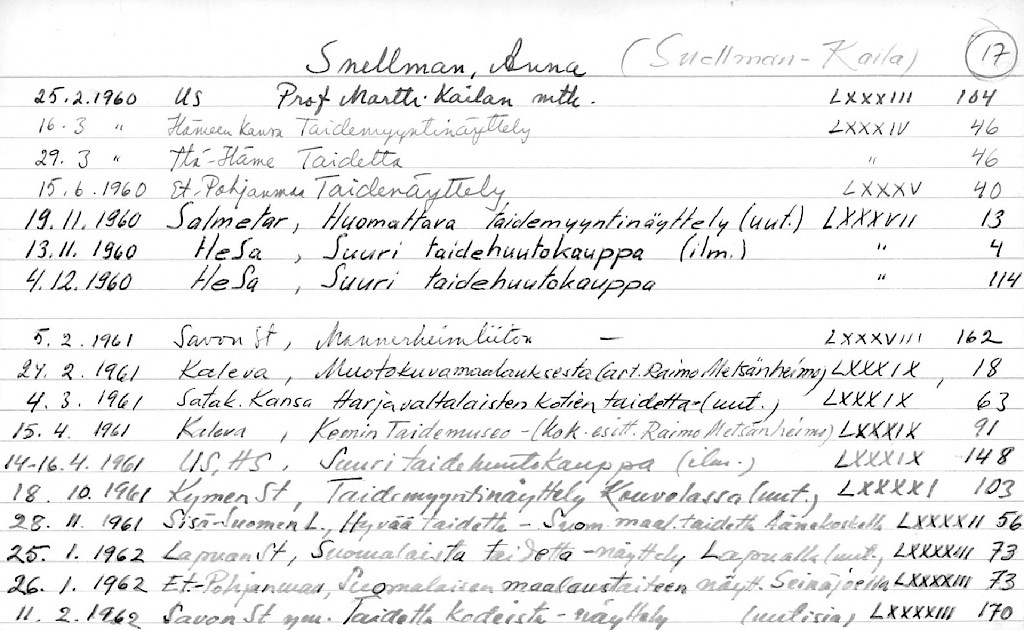 Snellman, Anna (Snellman-Kaila) 17
25.2.1960 US Prof Martti Kailan mtk. LXXXIII 104
16.3 " Hämeen Kansa Taidemyyntinäyttely LXXXIV 46
29.3 " Itä-Häme Taidetta " 46
15.6.1960 Et.-Pohjanmaa Taidenäyttely LXXXV 40
19.11.1960 Salmetar, Huomattava taidemyyntinäyttely (uut.) LXXXVII 13
13.11.1960 HeSa, Suuri taidehuutokauppa (ilm.) " 4
4.12.1960 HeSa, Suuri taidehuutokauppa " 114
5.2.1961 Savon St, Mannerheimliiton — LXXXVIII 162
24.2.1961 Kaleva, Muotokuvamaalauksesta (art. Raimo Metsänheimo) LXXXIX, 18
4.3.1961 Satak. Kansa Harjavaltalaisten kotien taidetta - (uut.) LXXXIX 63
15.4.1961 Kaleva, Kemin Taidemuseo - (kok. esitt. Raimo Metsänheimo) LXXXIX 91
14-16.4.1961 US, HS, Suuri taidehuutokauppa (ilm.) LXXXIX 148
18.10.1961 Kymen St, Taidemyyntinäyttely Kouvolassa (uut.) LXXXXI 103
28.11.1961 Sisä-Suomen L., Hyvää taidetta - Suom. maal. taidetta Äänekoskella LXXXXII 56
25.1.1962 Lapuan St, Suomalaista taidetta -näyttely Lapualla (uut., LXXXXIII 73
26.1.1962 Et.-Pohjanmaa, Suomalaisen maalaustaiteen näytt. Seinäjoella LXXXXIII 73
11.2.1962 Savon St ym. Taidetta kodeista -näyttely (uutisia) LXXXXIII 170